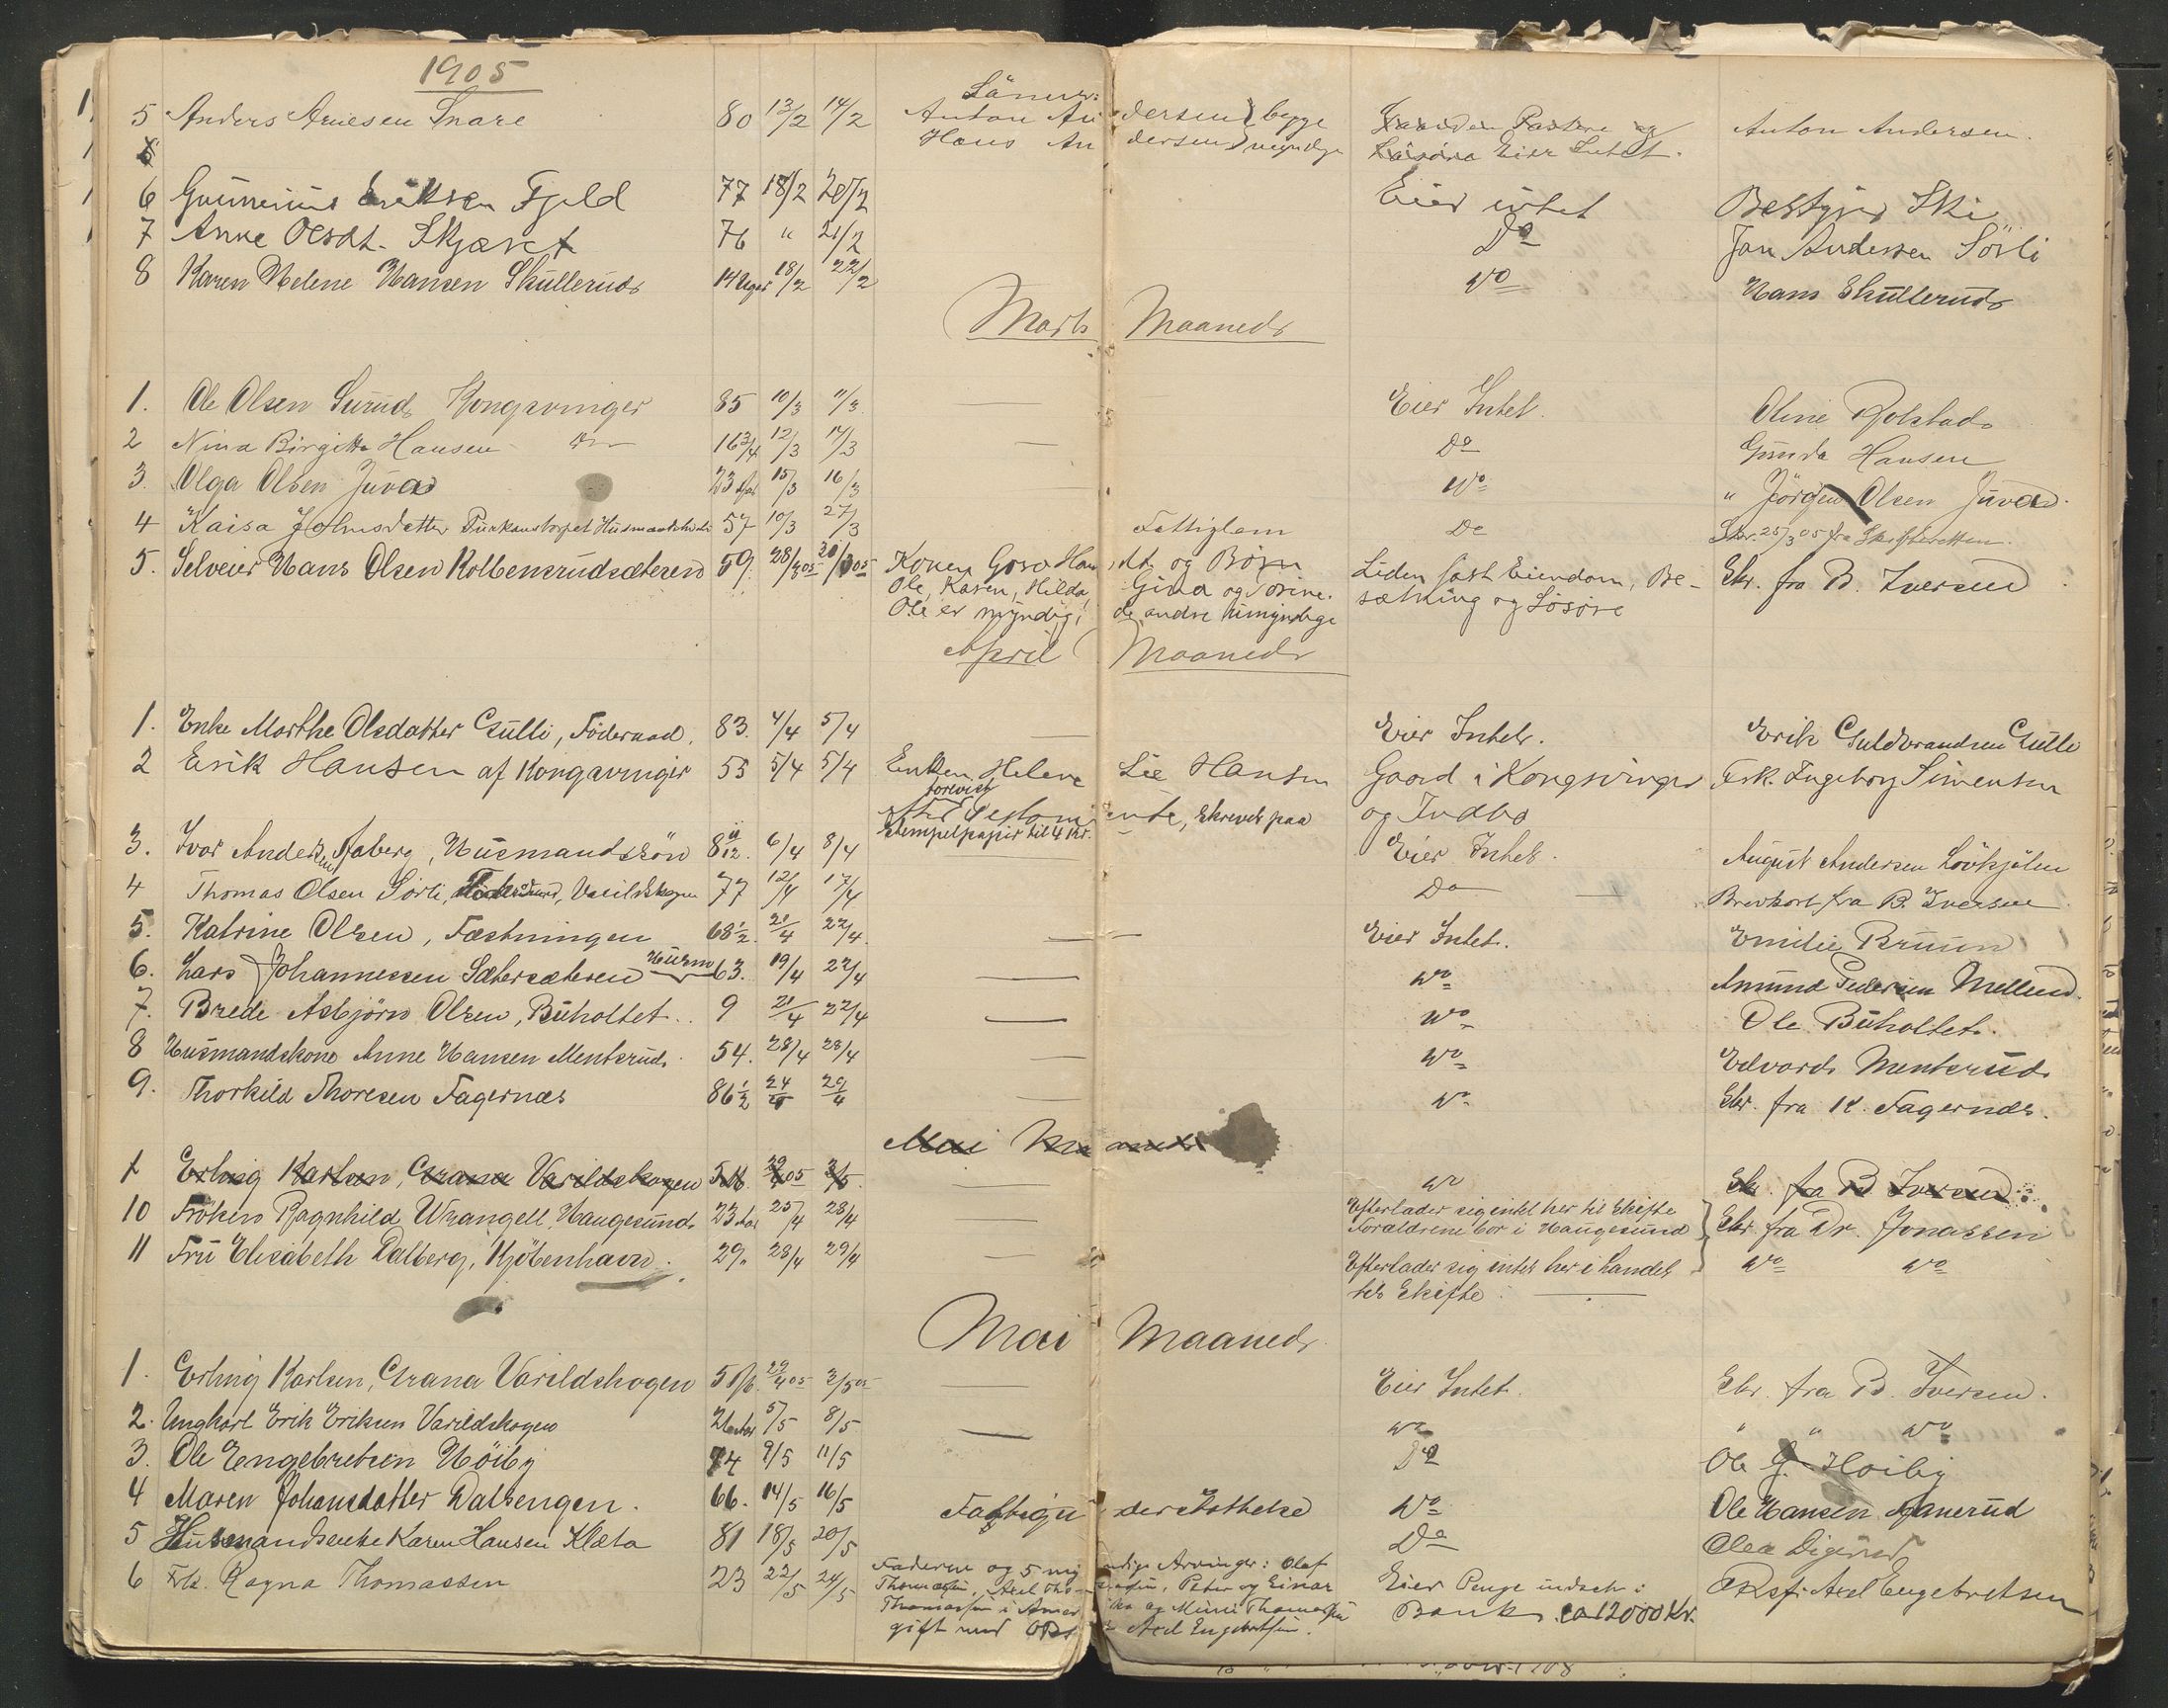 1905
Sönner:
5 Anders Arnesen Snare 80 13/2 14/2 Anton Andersen } begge Anton Andersen.
Hans Andersen } myndige Eier Intet.
6 Gunnerius Eriksen Fjeld 77 18/2 20/2 Eier intet Bestyrer Ski
7 Anne Olsdt. Skjæret 76 " 21/2 Do Jan Andersen Sörli
8 Karen Helene Hansen Skullerud 14 Uger 18/2 22/2 Do Hans Skullerud
Marts Maaned
1. Ole Olsen Surud Kongsvinger 85 10/3 11/3 — Eier Intet. Oline Rolstad
2 Nina Birgitte Hansen Do 16 3/4 12/3 14/3 — Do Gunda Hansen
3. Olga Olsen Juvad 23 15/3 16/3 — Do " Jörgen Olsen Juvad.
4 Kaisa Johnsdatter 57 10/3 27/3 Fattiglem Do Skr. 25/3 05 fra Skifteretten.
5. Selveier Hans Olsen Kolbensrudsæteren 59. Konen og Børn Liden fast Eiendom, Be- Skr. fra B. Iversen
Ole, Karen, Hilda, Gina og Torine. sætning og Løsøre
Ole er myndig, de andre Umyndige
April Maaned
1. Enke Marthe Olsdatter Gulli, Föderaad. 83. 4/4 5/4 — Eier Intet. Erik Guldbrandsen Gulli
2 Erik Hansen af Kongsvinger 55 5/4 5/4 Enken Helene Lie Hansen Gaard i Kongsvinger Frk. Ingeborg Simensen
forevist
Testamente, skrevet paa og Indbo
Stempelpapir til 4 Kr.
3. Ivar Andersen Aaberg, Husmandssön 8 11/12. 6/4 8/4 — Eier Intet. August Andersen Lövhjölen
4 Thomas Olsen Sörli, Varildskogen 77 12/4 17/4 Do — Brevkort fra B. Iversen
5. Katrine Olsen, Fæstningen 68 1/2. 21/4 22/4. — Eier Intet. Emilie Bruun
6. Lars Johannessen Sætersæteren Husm. 63. 19/4 22/4 — Do Amund Pedersen Mellem.
7. Brede Asbjørn Olsen, Buholtet. 9 21/4 22/4 — Do Ole Buholtet.
8 Husmandskone Anne Hansen Mentsrud. 54. 28/4 28/4 — Do Edvard Mentsrud
9. Thorkild Thoresen Fagernæs 86 1/2 24/4 29/4 — Do Skr. fra K. Fagernæs.
Mai Maaned
1 Erling Karlsen, Grana Varildskogen — Do Skr. fra B Iversen.
10 Fröken Ragnhild Wrangell, Haugesund 23 Aar 25/4 28/4 — Efterlader sig intet her til Skifte
Forældrene bor i Haugesund } Skr. fra Dr. Jonassen
11 Fru Elisabeth Dalberg, Kjöbenhavn. 29. 28/4 29/4 — Efterlader sig intet her i Landet } Do Do
til Skifte. —
Mai Maaned
1. Erling Karlsen, Grana Varildskogen 29/4 05 2/5 05 — Eier Intet. Skr. fra B. Iversen.
2. Ungkarl Erik Eriksen Varildskogen 5/5 8/5 — Do " " Do
3. Ole Engebretsen Höiby 74 9/5 11/5 Do Ole G. Höiby
4 Maren Johansdatter Dalsengen. 66. 14/5 16/5 Fattigunderstøttelse Do Ole Hansen
5 Husmandsenke Karen Hansen Klæta 81 18/5 20/5 Do Olea Digerud
6 Frk. Ragna Thomassen 23 22/5 24/5 Faderen og 5 myndige Arvinger: Olaf Eier Penge indsat i ORsf. Axel Engebretsen
Thomassen, Axel Thomassen, Peter og Einar Bank ca 12000 Kr.
Thomassen i Amerika og Mimi Thomassen
gift med Axel Engebretsen.